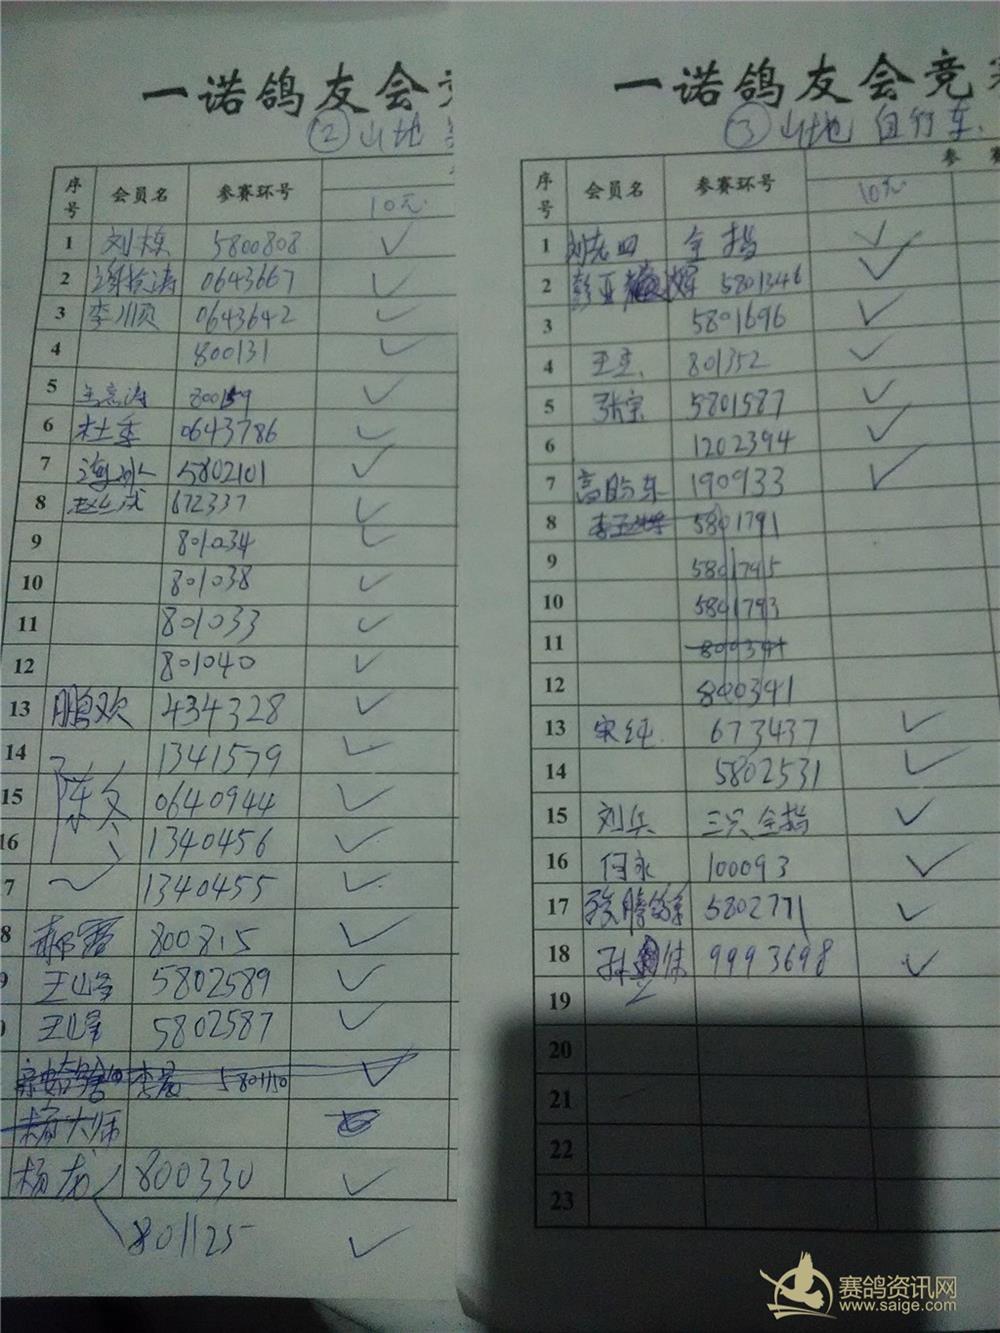 一诺鸽友会
② 山地
序号 会员名 参赛环号
10元
1 刘栋 5800808 ✓
2 涛 0643667 ✓
3 李川贝 0643642 ✓
4 800131 ✓
5 涛 ✓
6 杜季 0643786 ✓
7 海冰 5802101 ✓
8 赵 672337 ✓
9 801034 ✓
10 801038 ✓
11 801033 ✓
12 801040 ✓
13 鹏欢 434328 ✓
14 1341579 ✓
15 陈冬 0640944 ✓
16 1340456 ✓
7 1340455 ✓
8 郝 800815 ✓
9 王山峰 5802589 ✓
0 王山峰 5802587 ✓
李晨 5801150 ✓
杨大师
杨 800330 ✓
801125 ✓
一诺鸽友会竞
③ 山地自行车
序号 会员名 参赛环号 参赛
10元
1 刘老四 全指 ✓
2 彭亚辉 5801346 ✓
3 5801696 ✓
4 王 801352 ✓
5 张宝 5801587 ✓
6 1202394 ✓
7 高鹏车 190933 ✓
8 李 5801791
9 5801795
10 5801793
11 800341
12 800341
13 宋红 673437 ✓
14 5802531 ✓
15 刘兵 三只全指 ✓
16 何永 100093 ✓
17 鹏 5802771 ✓
18 孙 9993698 ✓
19
20
21
22
23
赛鸽资讯网
www.saige.com